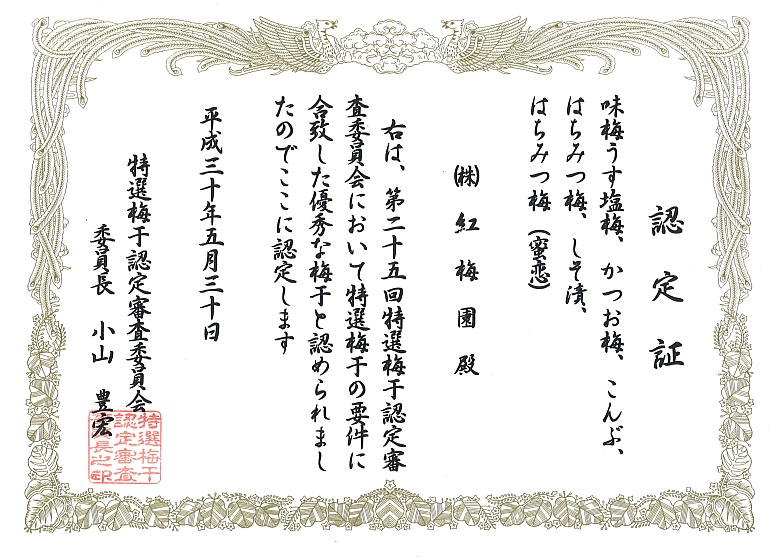 認定証
味梅うす塩梅、かつお梅、こんぶ、
はちみつ梅、しそ漬、
はちみつ梅(蜜恋)
㈱紅梅園殿
右は、第二十五回特選梅干認定審
査委員会において特選梅干の要件に
合致した優秀な梅干と認められまし
たのでここに認定します
平成三十年五月三十日
特選梅干認定審査委員会
委員長 小山 豊宏
特選梅干
認定審査
長之印